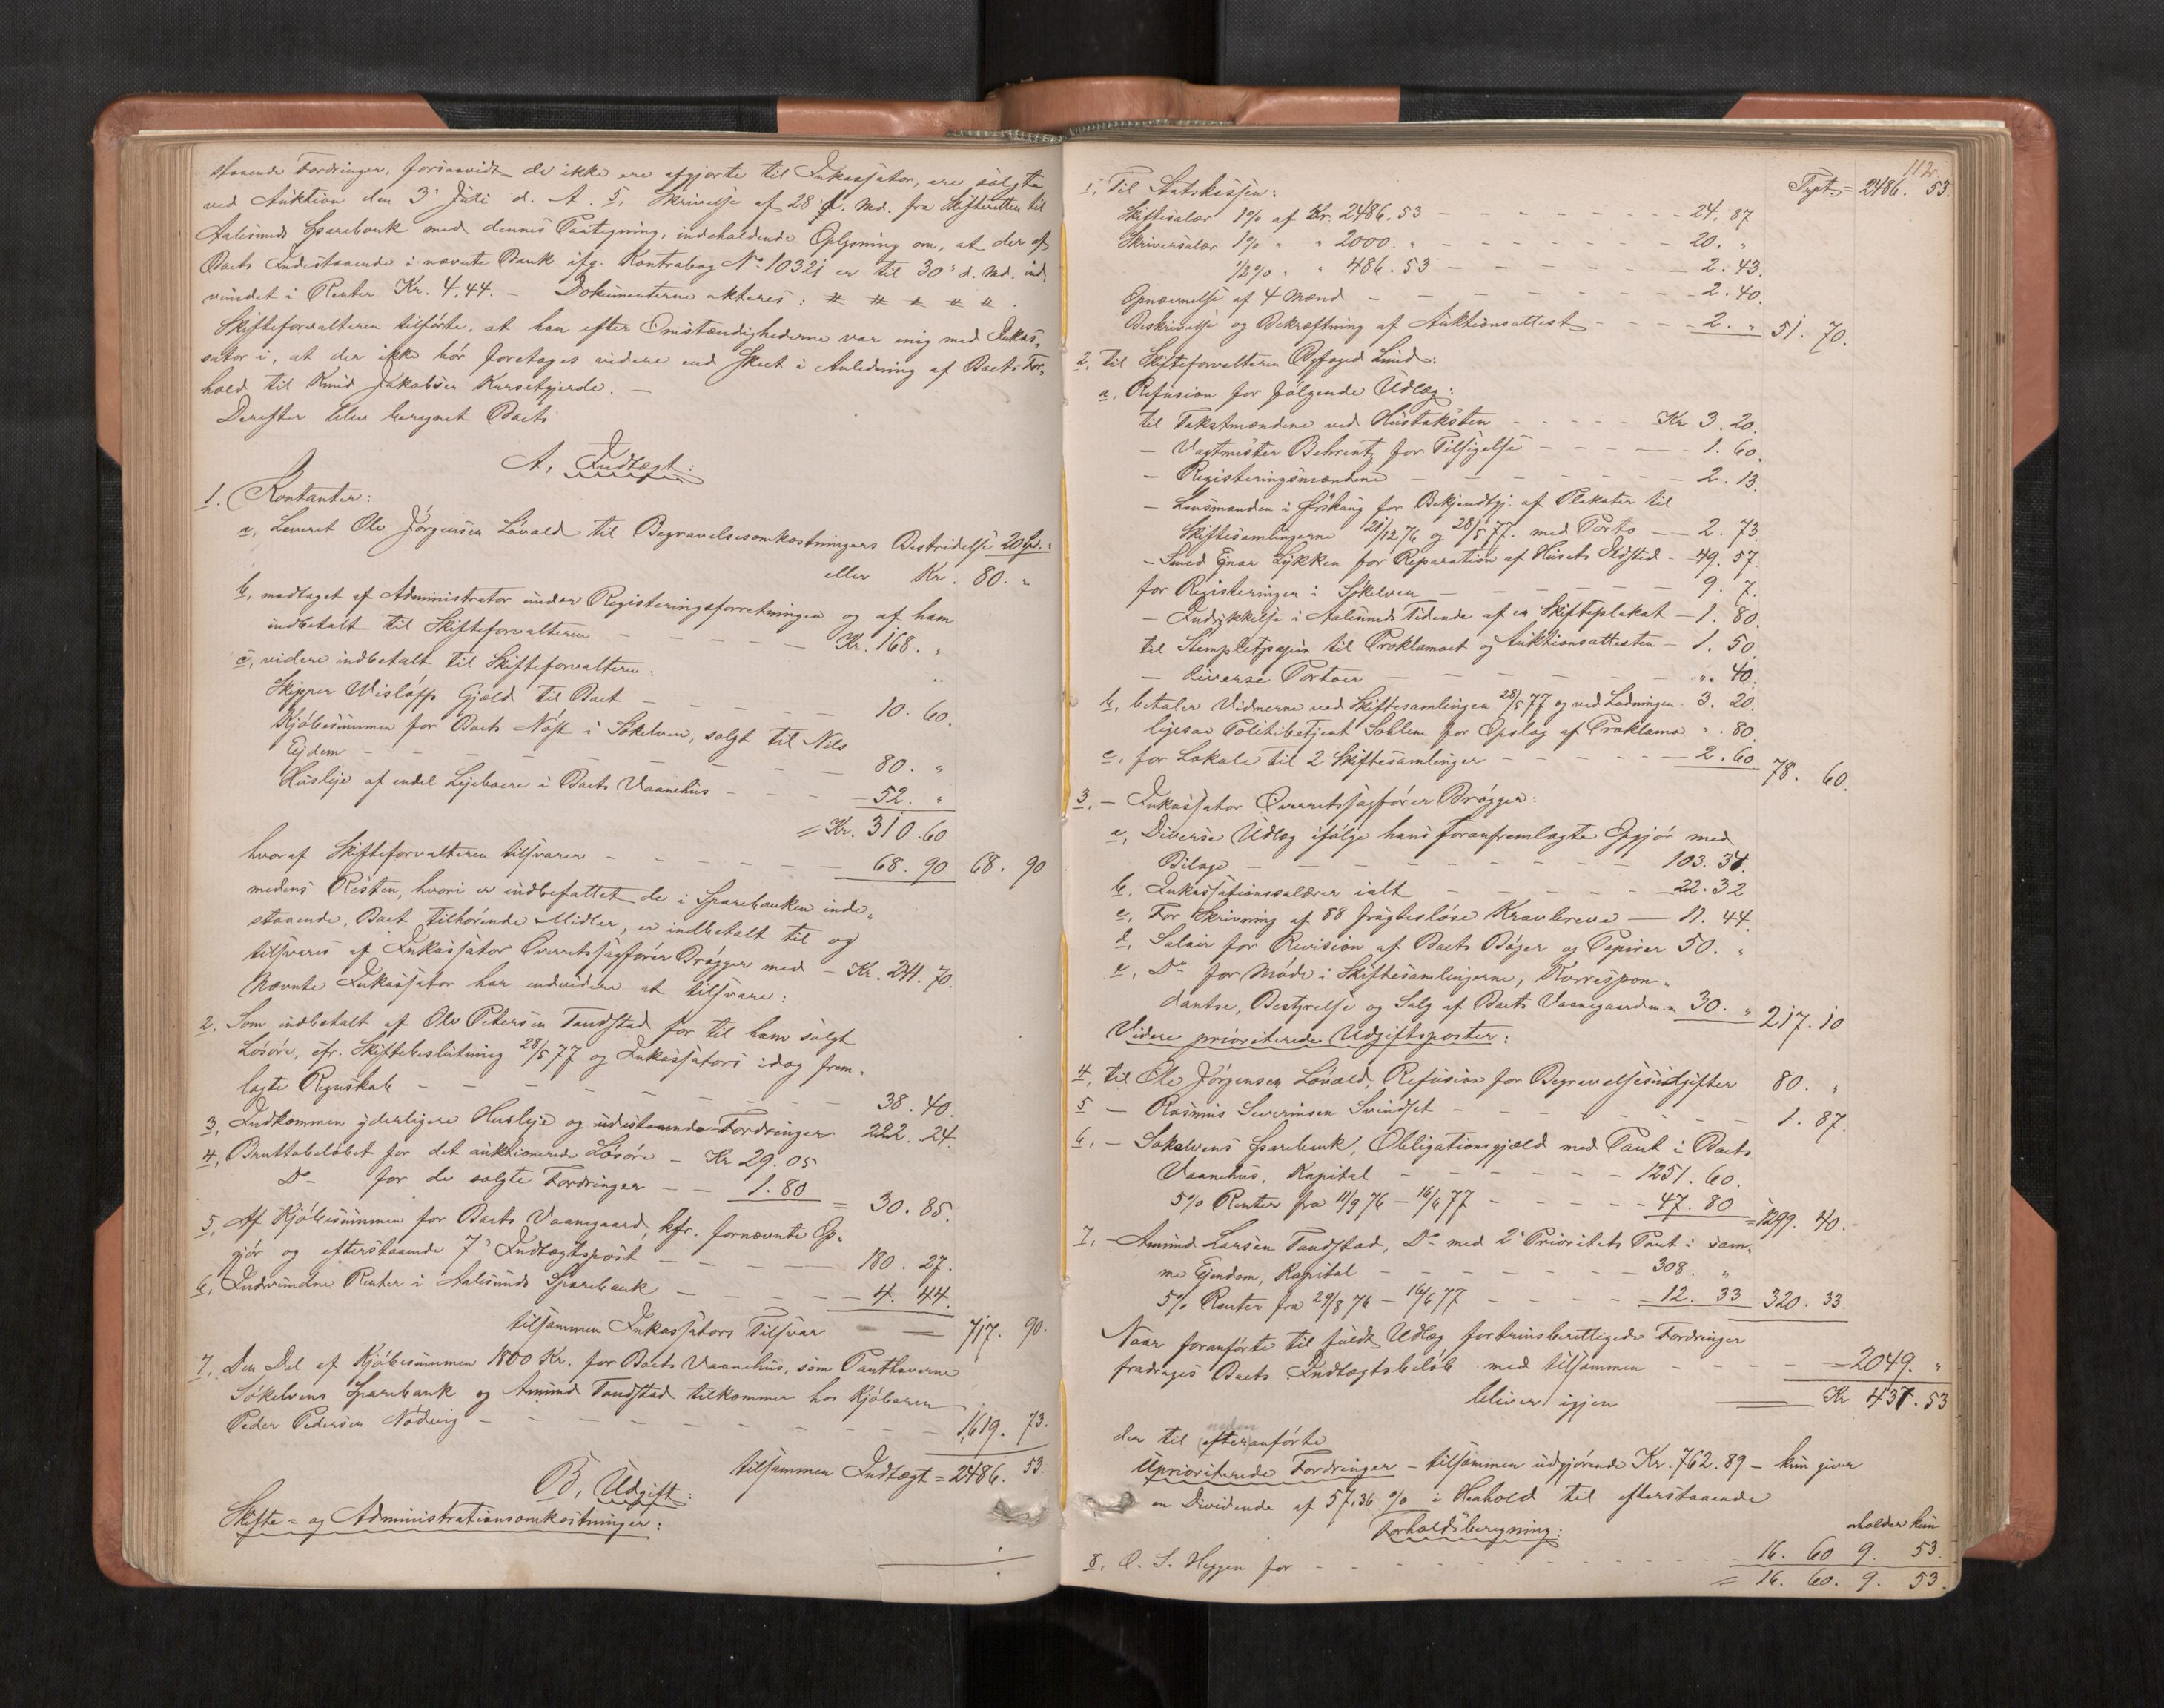 staaende Fordringer, forsaavidt de ikke ere afgjorte til Inkassator, ere solgte
ved Auktion den 3' Juli d. A. 5, Skrivelse af 28' f. Md. fra Skifteretten til
Aalesunds Sparebank med dennes Paategning, indeholdende Oplysning om, at der af
Boets Indestaaende i nævnte Bank ifg. Kontrabog No. 10321 er til 30' d. Md. ind,
vundet i Renter Kr. 4,44. – Dokumenterne akteres:
Skifteforvalteren tilførte, at han efter Omstændighederne var enig med Inkas,
sator i, at der ikke bør foretages videre end skeet i Anledning af Boets For,
hold til Knud Jakobsen Kursetgjerde. –
Derefter blev beregnet Boets
A, Indtægt:
1. Kontanter:
a, Leveret Ole Jørgensen Løvold til Begravelsesomkostningers Bestridelse 20 Spd.:
eller Kr. 80. "
b, modtaget af Administrator under Registeringsforretningen og af ham
indbetalt til Skifteforvalteren – – – – Kr. 168. "
c, videre indbetalt til Skifteforvalteren:
Skipper Wisløffs Gjæld til Boet – – – – – 10. 60.
Kjøbesummen for Boets Nøst i Søkelven, solgt til Nils
Ejdem – – – – – – – 80. "
Husleje af endel Lejeboere i Boets Vaanehus – – – 52. "
= Kr. 310. 60
hvoraf Skifteforvalteren tilsvarer – – – – – 68. 90 68. 90
medens Resten, hvori er indbefattet de i Sparebanken inde,
staaende, Boet tilhørende Midler, er indbetalt til og
tilsvares af Inkassator Overretssagfører Brøgger med – Kr. 241. 70.
Nævnte Inkassator har endvidere at tilsvare:
2. Som indbetalt af Ole Petersen Tandstad for til ham solgt
Løsøre, cfr. Skiftebeslutning 28/5 77 og Inkassators idag frem,
lagte Regnskab – – – – – – – 38. 40.
3, Indkommen yderligere Husleje og udestaaende Fordringer 222. 24.
4, Bruttobeløbet for det auktionerede Løsøre – Kr 29. 05
Do – for de solgte Fordringer – – 1. 80 = 30. 85.
5, Af Kjøbesummen for Boets Vaanegaard, kfr. fornævnte Op,
gjør og efterstaaende 7' Indtægtspost – – – – 180. 27.
6, Indvundne Renter i Aalesunds Sparebank – – – – – 4. 44.
tilsammen Inkassators Tilsvar = 717. 90.
7, Den Del af Kjøbesummen 1800 Kr. for Boets Vaanehus, som Panthaverne
Søkelvens Sparebank og Amund Tandstad tilkommer hos Kjøberen
Peder Pedersen Nødvig – – – – – – – – 1,619. 73.
tilsammen Indtægt = 2486. 53.
B, Udgift:
Skifte- og Administrationsomkostninger:
112.
Trpt. = 2486. 53.
1, Til Statskassen:
Skiftesalær 1% af Kr. 2486. 53 – – – – – – 24. 87
Skriversalær 1% " " 2000. " – – – – – – 20. "
1/2% " " 486. 53 – – – – – – 2. 43.
Opnævnelse af 4 Mænd – – – – – – – 2. 40.
Beskrivelse og Bekræftning af Auktionsattest – – – 2. " 51. 70.
2, til Skifteforvalteren Byfoged Lund:
a, Refusion for følgende Udlæg:
til Takstmændene ved Hustaksten – – – – – Kr 3. 20.
– Vagtmester Behrentz for Tilsigelse – – – – 1. 60.
– Registeringsmændene – – – – – – – 2. 13.
– Lensmanden i Ørskoug for Bekjendtgj. af Plakater til
Skiftesamlingerne 21/12 76 og 28/5 77. med Porto – – 2. 73.
– Smed Ejnar Lykken for Reparation af Husets Ildsted – 49. 57.
for Registeringen i Søkelven – – – – – 9. 7.
– Indrykkelse i Aalesunds Tidende af en Skifteplakat – 1. 80.
til Stempletpapir til Proklamaet og Auktionsattesten – 1. 50.
– diverse Portoer – – – – – – – " 40.
b, betaler Vidnerne ved Skiftesamlingen 28/5 77 og ved Lodningen – 3. 20.
ligesaa Politibetjent Sohlem for Opslag af Proklama " . 80.
c, for Lokale til 2 Skiftesamlinger – – – – – 2. 60 78. 60.
3, – Inkassator Overretssagfører Brøgger:
a, Diverse Udlæg ifølge hans foranfremlagte Opgjør med
Bilage – – – – – – – – – 103. 34.
b, Inkassationssalærer ialt – – – – – 22. 32
c, For Skrivning af 88 frugtesløse Kravbreve – 11. 44.
d, Salair for Revision af Boets Bøger og Papirer 50. "
e, Do for Møde i Skiftesamlingerne, Korrespon,
dantse, Bestyrelse og Salg af Boets Vaanegaard m. m. 30. " 217. 10
Videre prioriterede Udgiftsposter:
4, til Ole Jørgensen Løvold, Refusion for Begravelsesudgifter 80. "
5 – Rasmus Severinsen Svindset – – – – – – 1. 87.
6, – Søkelvens Sparebank, Obligationsgjæld med Pant i Boets
Vaanehus, Kapital – – – – – – 1251. 60.
5% Renter fra 11/9 76 – 16/6 77 – – – – – 47. 80 = 1299. 40.
7, – Amund Larsen Tandstad, Do med 2' Prioritets Pant i sam,
me Ejendom, Kapital – – – – – – – 308. "
5% Renter fra 29/8 76 – 16/6 77 – – – – – 12. 33 320. 33.
Naar foranførte til fuldt Udlæg fortrinsberettigede Fordringer
fradrages Boets Indtægtsbeløb med tilsammen – – – – = 2049. "
bliver igjen Kr 437. 53
neden
der til efteranførte
Uprioriterede Fordringer – tilsammen udgjørende Kr. 762. 89 – kun giver
en Dividende af 57,36 % i Henhold til efterstaaende
Forholdsberegning:
erholder kun
8, O. S. Heggen for – – – – – – 16. 60 9. 53.
= 16. 60. 9. 53.